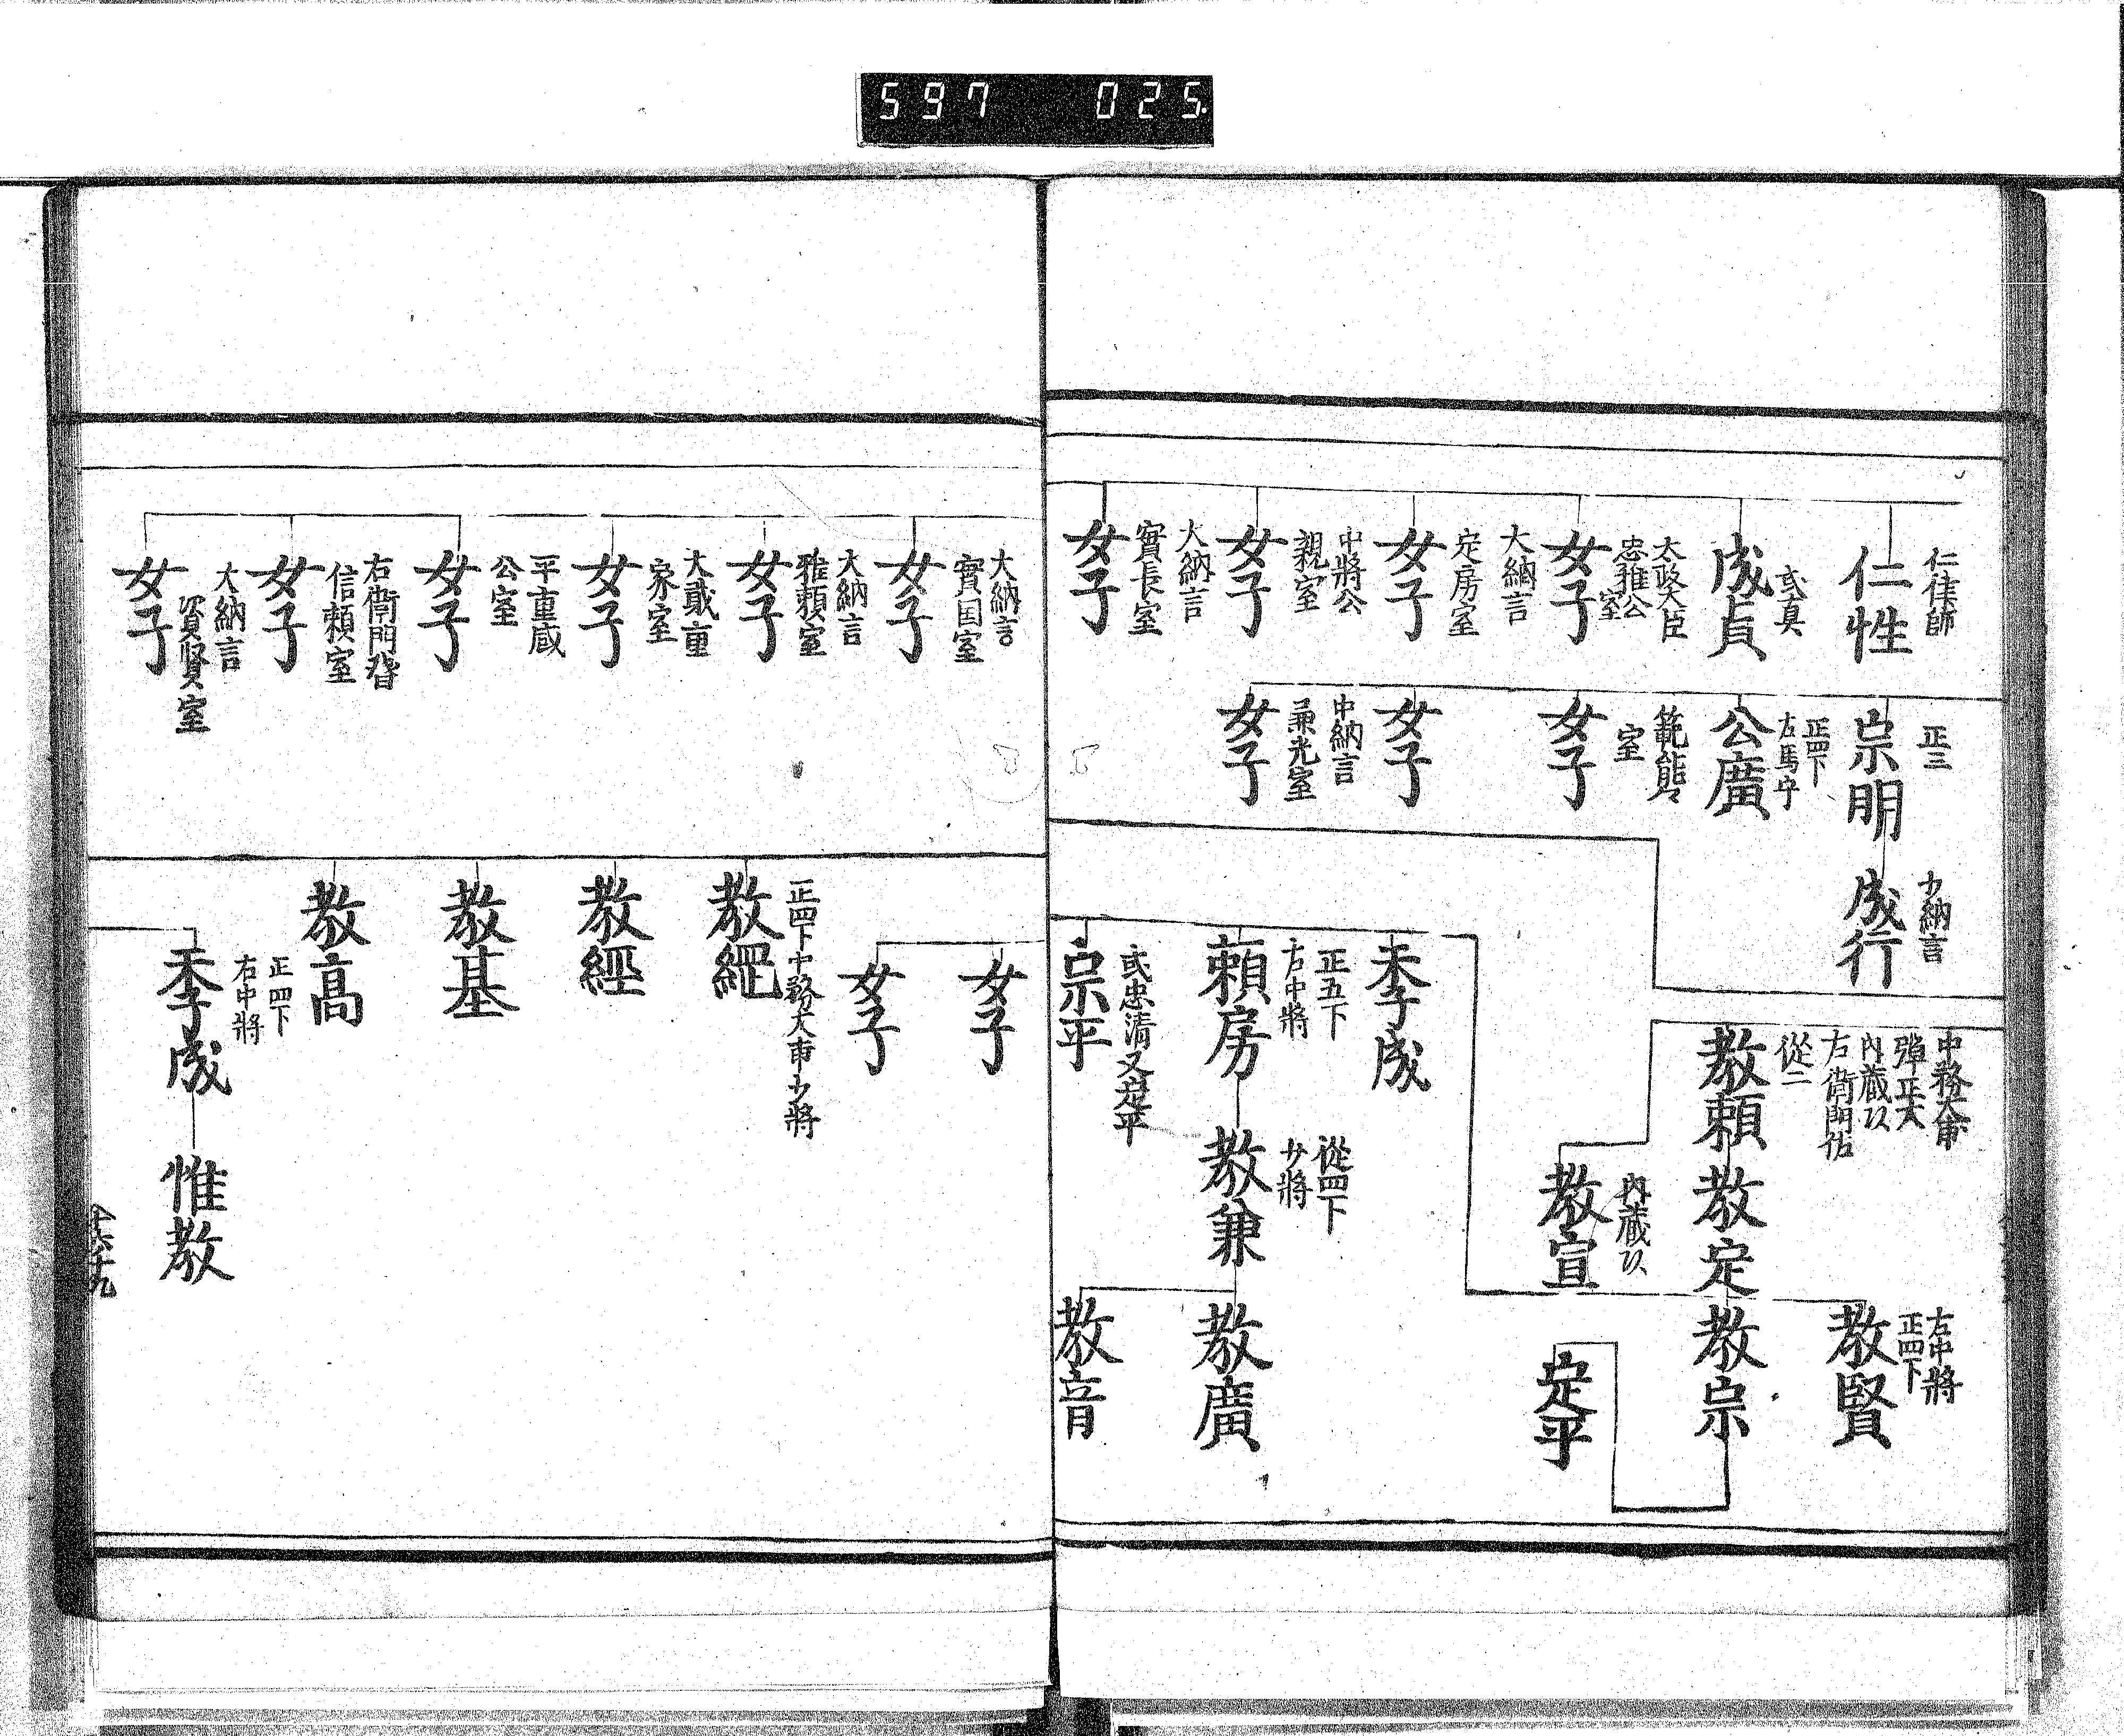 597 025
仁律師
仁性
或真
成貞
太政大臣
忠雅公
室
女子
大納言
定房室
女子
中將公
親室
女子
大納言
實長室
女子
正三
宗明
正四下
左馬守
公廣
範能
室
女子
女子
中納言
兼光室
女子
少納言
成行
中務大甫
彈正大
內藏以
右衛門佐
從二
教頼
教定
內藏以
教宣
左中將
正四下
教賢
教宗
定平
季成
正五下
右中將
頼房
從四下
少將
教兼
教廣
教音
或忠清又定平
宗平
大納言
實国室
女子
大納言
雅頼室
女子
大貳重
家室
女子
平重
公室
女子
右衛門督
信頼室
女子
大納言
資賢室
女子
女子
女子
正四下中務大甫少將
教
教經
教基
教高
正四下
右中將
季成
惟教
六十九